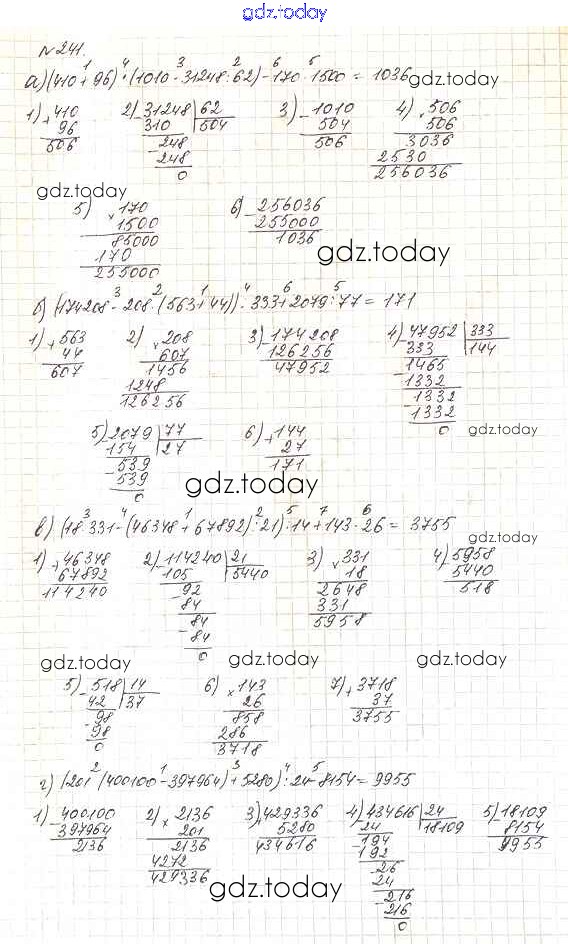 gdz.today
№241.
1 4 3 2 6 5
а) (410+96)·(1010-31248:62)-170·1500=1036 gdz.today
1) +410 2) -31248 |62 3) -1010 4) ×506
96 310 504 504 506
506 -248 506 3036
248 2530
0 256036
gdz.today
5) ×170 6) -256036
1500 255000
85000 1036
170 gdz.today
255000
3 2 1 4 6 5
б) (174208-208·(563+44)):333+2079:77=171
1) +563 2) ×208 3) -174208 4) -47952 |333
44 607 126256 333 144
607 1456 47952 -1465
1248 1332
126256 -1332
1332
0
5) 2079 |77 6) +144 gdz.today
154 27 27
-539 171
539
0
gdz.today
3 4 1 2 5 7 6
в) (18·331-(46348+67892):21):14+143·26=3755
gdz.today
1) +46348 2) -114240 |21 3) ×331 4) -5958
67892 105 5440 18 5440
114240 -92 2648 518
84 331
-84 5958
84
0
gdz.today gdz.today gdz.today
5) -518 |14 6) ×143 7) +3718
42 37 26 37
-98 858 3755
98 286
0 3718
2 1 3 4 5
г) (201·(400100-397964)+5280):24-8154=9955
1) -400100 2) ×2136 3) +429336 4) 434616 |24 5) -18109
397964 201 5280 24 18109 8154
2136 2136 434616 -194 9955
4272 192
429336 -26
24
-216
216
0
gdz.today